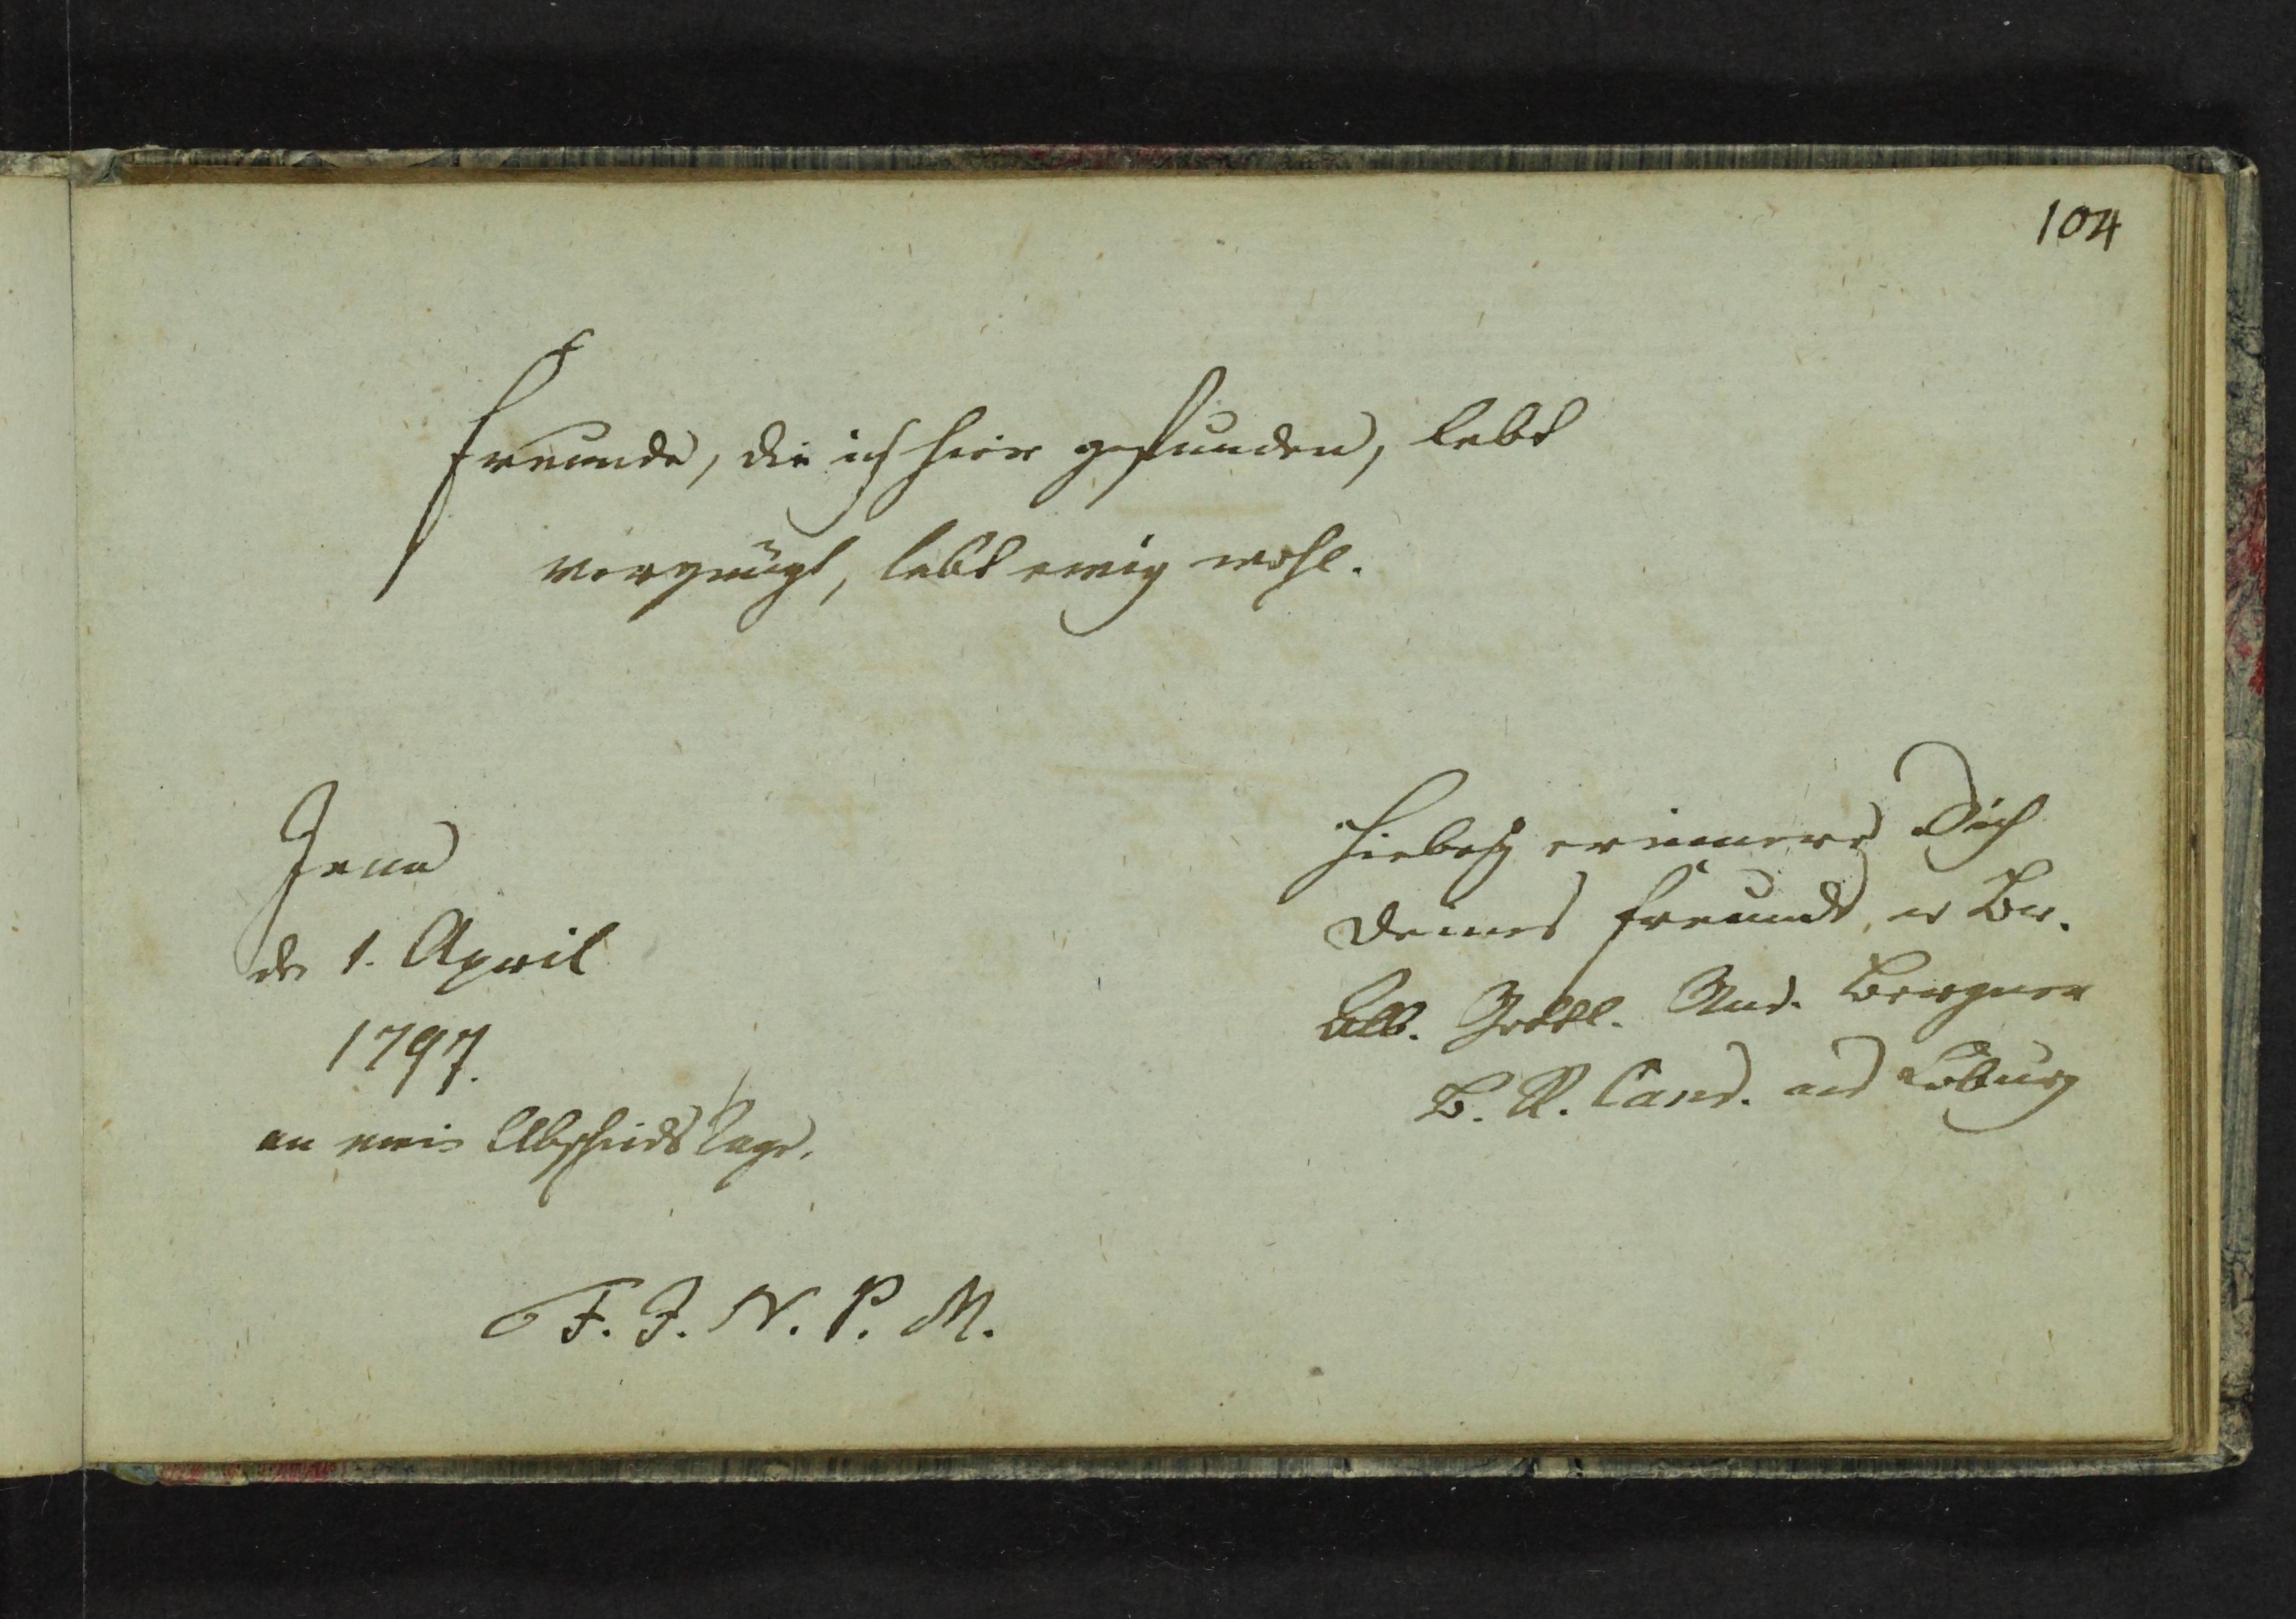 104
Freunde, die ich hier gefunden, lebt
vergnügt, lebt ewig wohl.
Jena
den 1. April
1797.
an mein Abschieds Tage.
F. J. N. P. M.
Hiebey erinnere Dich
Deines Freunds u Br.
Gottl. And. Bergner
B. R. Cand. aus Coburg